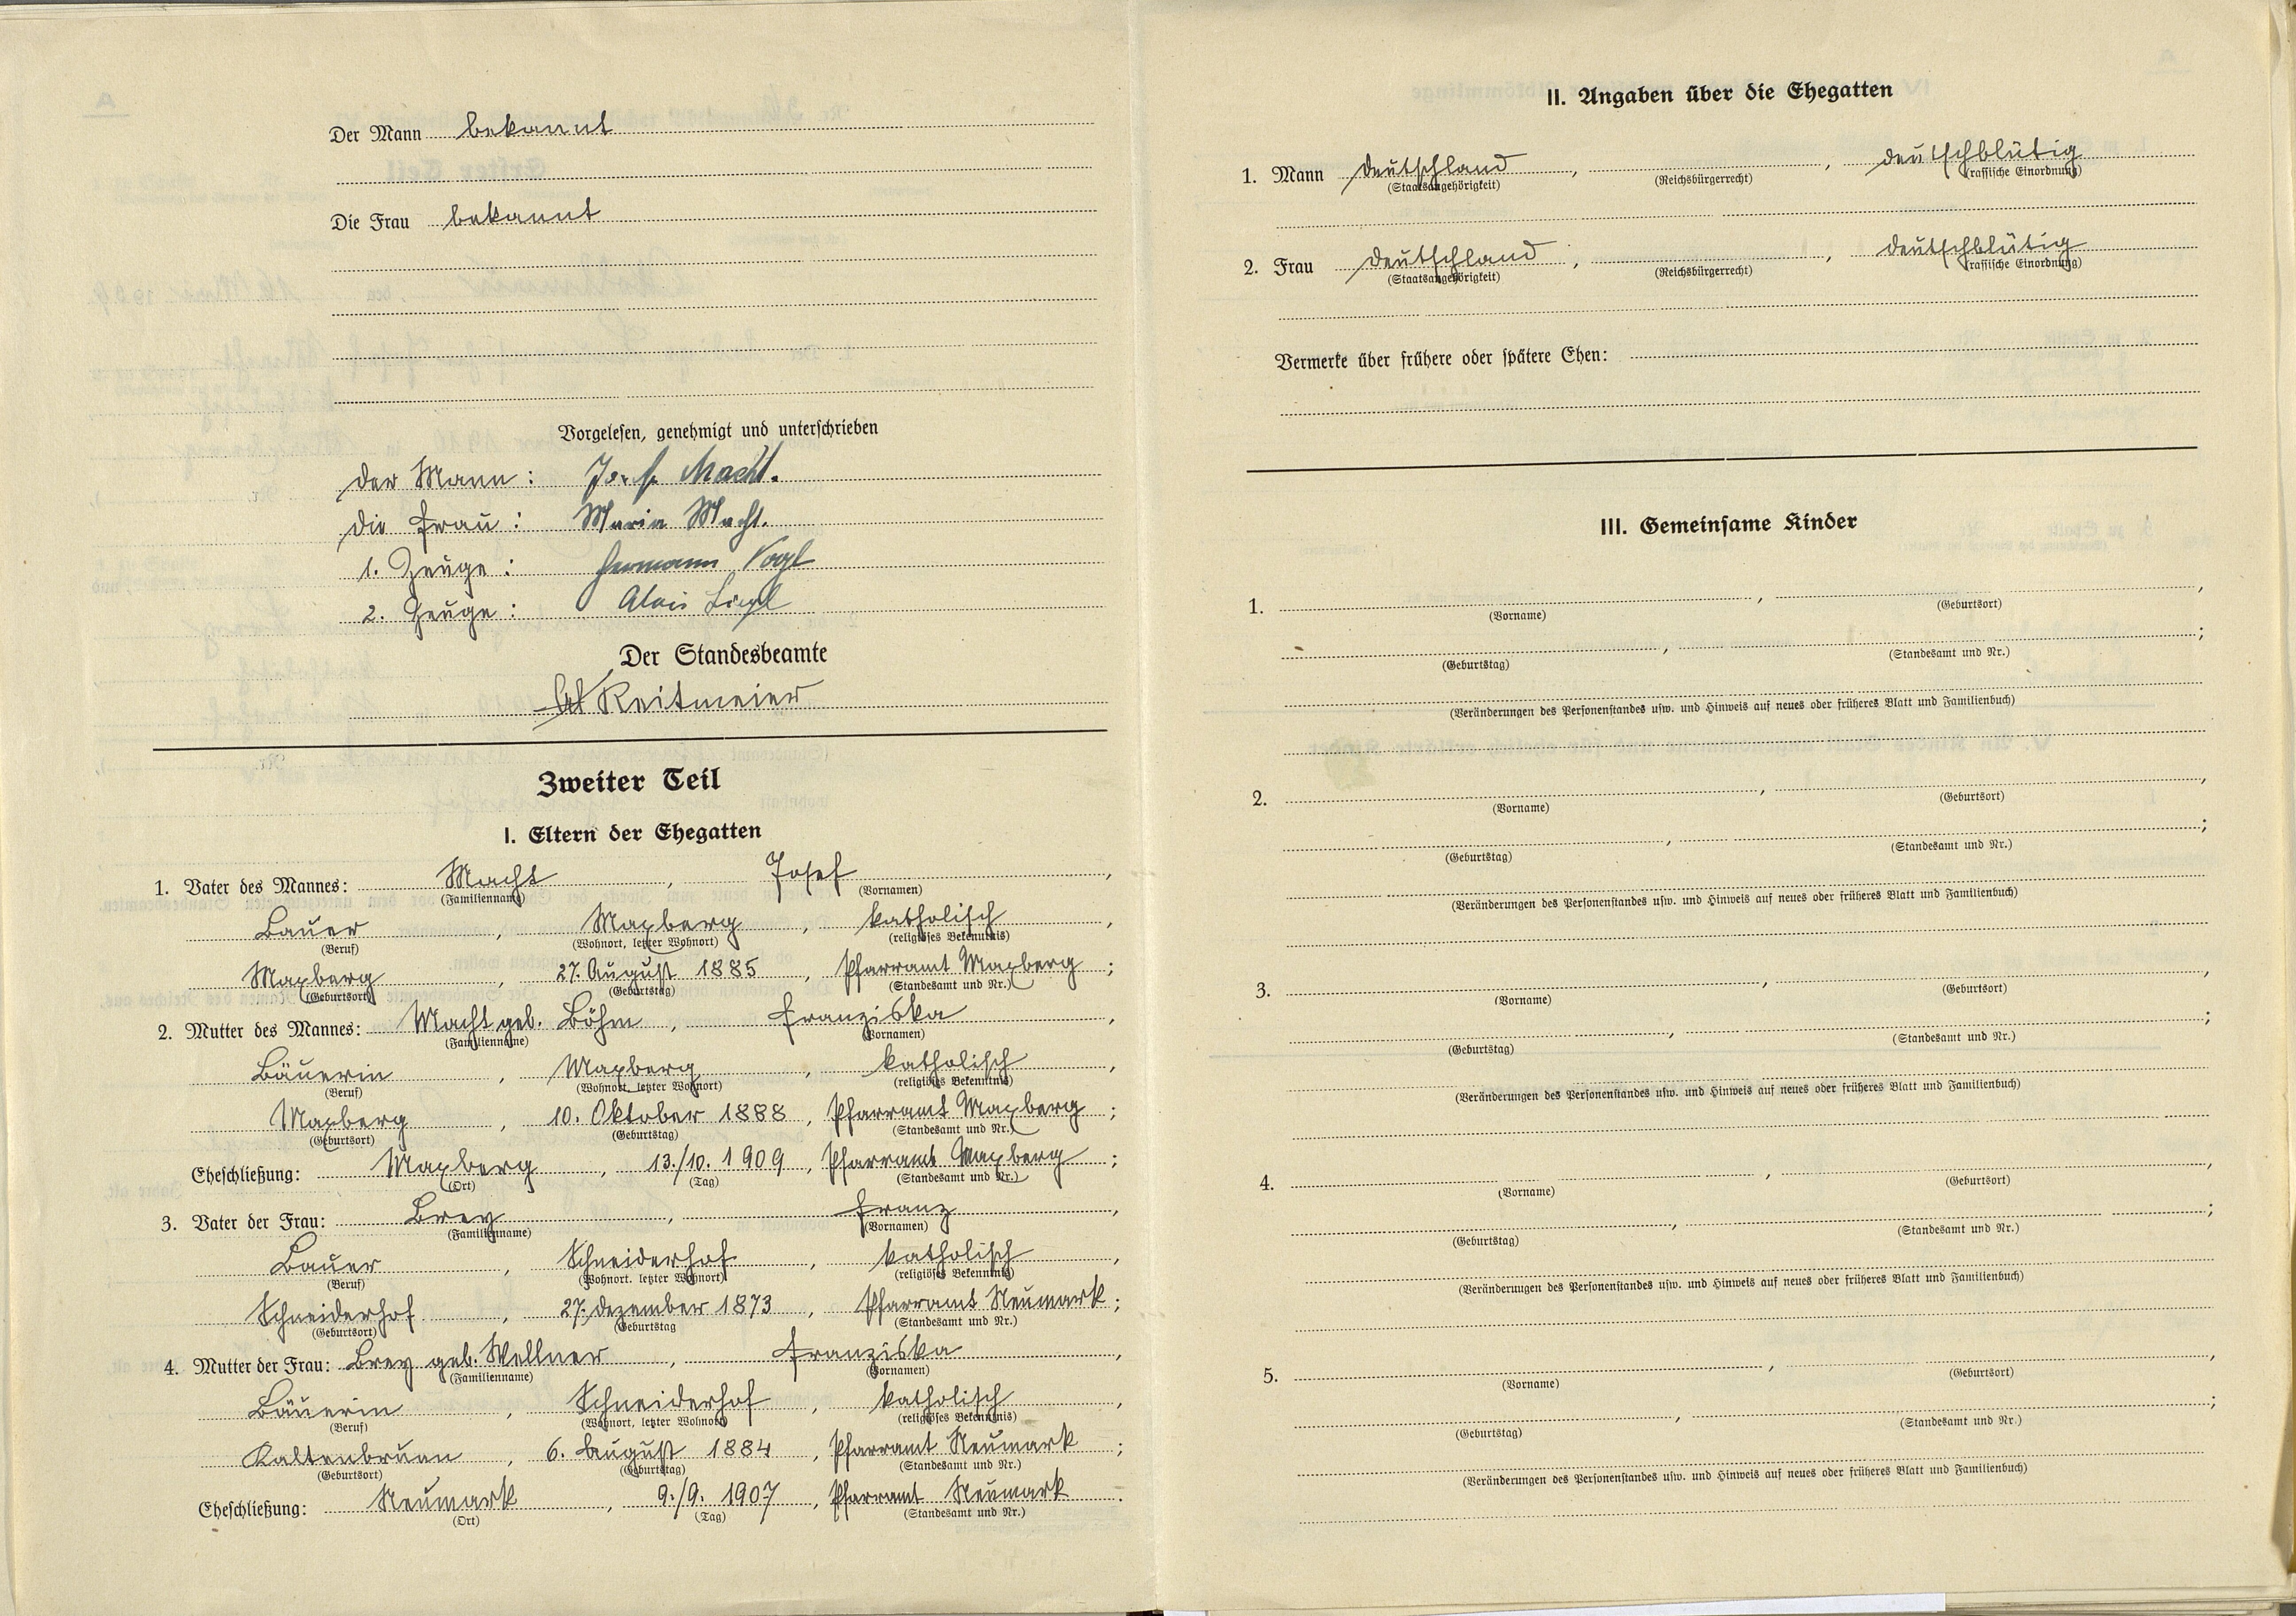 Der Mann bekannt
Die Frau bekannt
Vorgelesen, genehmigt und unterschrieben
der Mann: Josef Macht.
die Frau: Maria Macht.
1. Zeuge: Hermann Vogl
2. Zeuge: Alois Liegl
Der Standesbeamte
Reitmeier
Zweiter Teil
I. Eltern der Ehegatten
1. Vater des Mannes: Macht, Josef,
(Familienname) (Vornamen)
Bauer, Maxberg, katholisch,
(Beruf) (Wohnort, letzter Wohnort) (religiöses Bekenntnis)
Maxberg, 27. August 1885, Pfarramt Maxberg;
(Geburtsort) (Geburtstag) (Standesamt und Nr.)
2. Mutter des Mannes: Macht geb. Böhm, Franziska,
(Familienname) (Vornamen)
Bäuerin, Maxberg, katholisch,
(Beruf) (Wohnort, letzter Wohnort) (religiöses Bekenntnis)
Maxberg, 10. Oktober 1888, Pfarramt Maxberg;
(Geburtsort) (Geburtstag) (Standesamt und Nr.)
Eheschließung: Maxberg, 13./10. 1909, Pfarramt Maxberg;
(Ort) (Tag) (Standesamt und Nr.)
3. Vater der Frau: Brey, Franz,
(Familienname) (Vornamen)
Bauer, Schneiderhof, katholisch,
(Beruf) (Wohnort, letzter Wohnort) (religiöses Bekenntnis)
Schneiderhof, 27. Dezember 1873, Pfarramt Neumark;
(Geburtsort) (Geburtstag (Standesamt und Nr.)
4. Mutter der Frau: Brey geb. Wellner, Franziska,
(Familienname) (Vornamen)
Bäuerin, Schneiderhof, katholisch,
(Beruf) (Wohnort, letzter Wohnort) (religiöses Bekenntnis)
Kaltenbrunn, 6. August 1884, Pfarramt Neumark;
(Geburtsort) (Geburtstag) (Standesamt und Nr.)
Eheschließung: Neumark, 9./9. 1907, Pfarramt Neumark.
(Ort) (Tag) (Standesamt und Nr.)
II. Angaben über die Ehegatten
1. Mann Deutschland, , deutschblütig
(Staatsangehörigkeit) (Reichsbürgerrecht) (rassische Einordnung)
2. Frau Deutschland, , deutschblütig
(Staatsangehörigkeit) (Reichsbürgerrecht) (rassische Einordnung)
Vermerke über frühere oder spätere Ehen:
III. Gemeinsame Kinder
1. , ,
(Vorname) (Geburtsort)
, ;
(Geburtstag) (Standesamt und Nr.)
(Veränderungen des Personenstandes usw. und Hinweis auf neues oder früheres Blatt und Familienbuch)
2. , ,
(Vorname) (Geburtsort)
, ;
(Geburtstag) (Standesamt und Nr.)
(Veränderungen des Personenstandes usw. und Hinweis auf neues oder früheres Blatt und Familienbuch)
3. , ,
(Vorname) (Geburtsort)
, ;
(Geburtstag) (Standesamt und Nr.)
(Veränderungen des Personenstandes usw. und Hinweis auf neues oder früheres Blatt und Familienbuch)
4. , ,
(Vorname) (Geburtsort)
, ;
(Geburtstag) (Standesamt und Nr.)
(Veränderungen des Personenstandes usw. und Hinweis auf neues oder früheres Blatt und Familienbuch)
5. , ,
(Vorname) (Geburtsort)
, ;
(Geburtstag) (Standesamt und Nr.)
(Veränderungen des Personenstandes usw. und Hinweis auf neues oder früheres Blatt und Familienbuch)